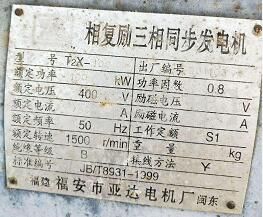 相复励三相同步发电机
型号 T2X- 出厂编号
额定功率 kW 功率因数 0.8
额定电压 400 V 励磁电压 V
额定电流 A 励磁电流 A
额定频率 50 Hz 工作定额 S1
额定转速 1500 r/min 重量 kg
绝缘等级 B 接线方法 Y
标准编号 JB/T8931-1999
福建 福安市亚达电机厂 闽东